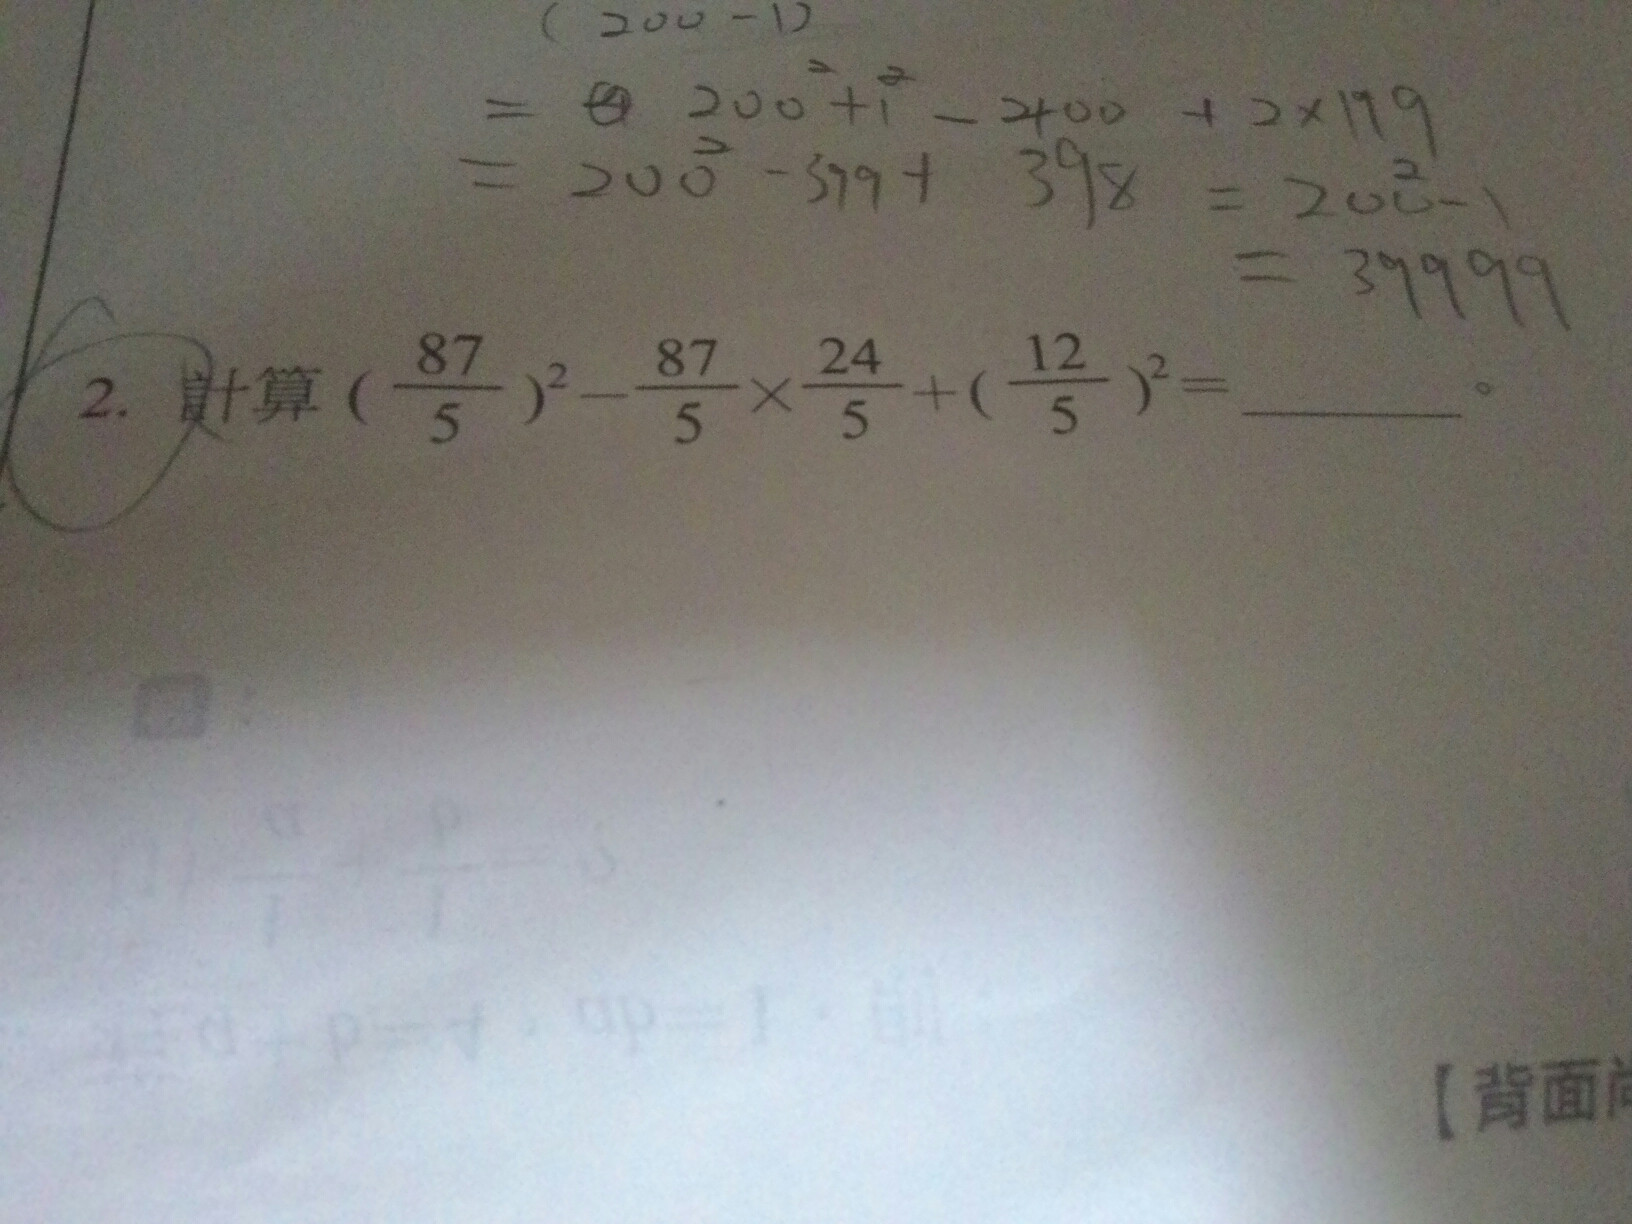 (200-1)
= 200²+1²-400+2×199
= 200²-399+398 = 200²-1
= 39999
2. 計算(87/5)²-87/5×24/5+(12/5)²=______。
【背面尚